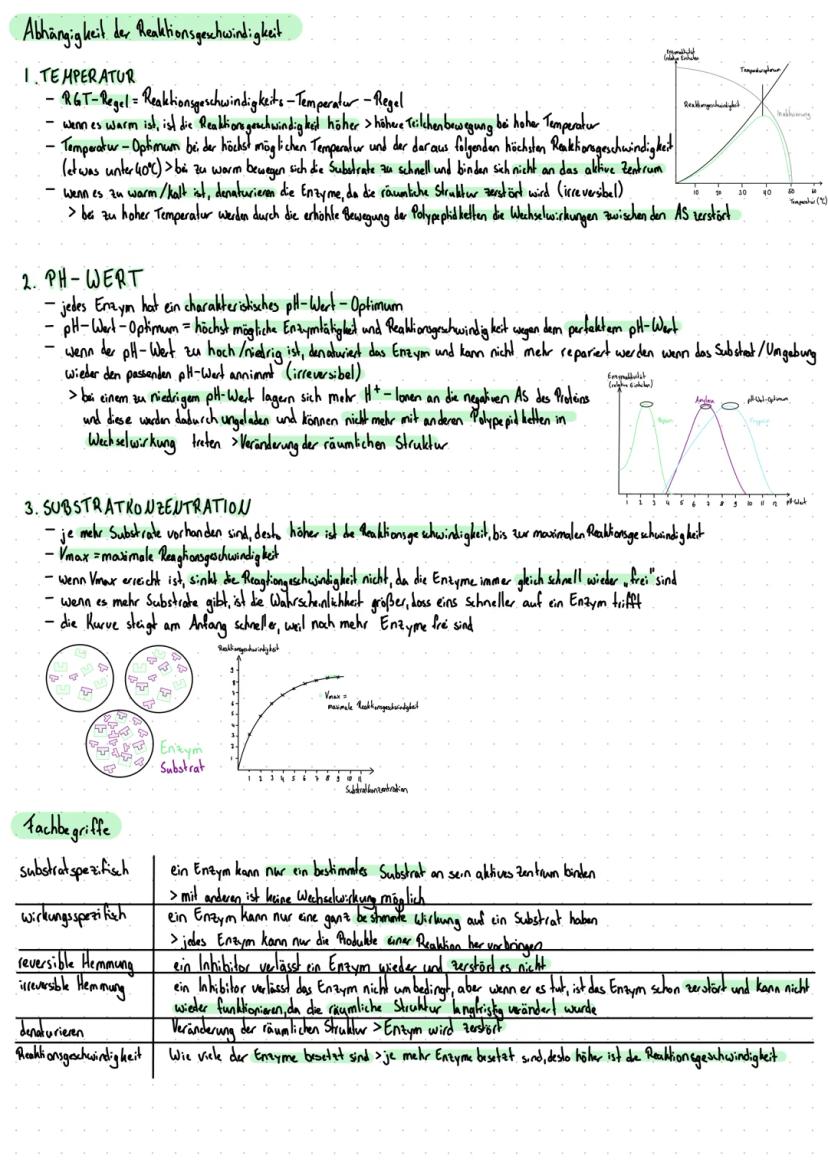 Abhängigkeit der Reaktionsgeschwindigkeit
1. TEMPERATUR
- RGT-Regel = Reaktionsgeschwindigkeits-Temperatur-Regel
- wenn es warm ist, ist die Reaktionsgeschwindigkeit höher > höhere Teilchenbewegung bei hoher Temperatur
- Temperatur-Optimum bei der höchst möglichen Temperatur und der daraus folgenden höchsten Reaktionsgeschwindigkeit
(etwas unter 40°C) > bei zu warm bewegen sich die Substrate zu schnell und binden sich nicht an das aktive Zentrum
- wenn es zu warm/kalt ist, denaturieren die Enzyme, da die räumliche Struktur zerstört wird (irreversibel)
> bei zu hoher Temperatur werden durch die erhöhte Bewegung der Polypeptidketten die Wechselwirkungen zwischen den AS zerstört
Enzymaktivität
(relative Einheiten)
Temperaturoptimum
Reaktionsgeschwindigkeit
Inaktivierung
10 20 30 40 50 60
Temperatur (°C)
2. PH-WERT
- jedes Enzym hat ein charakteristisches pH-Wert-Optimum
- pH-Wert-Optimum = höchst mögliche Enzymtätigkeit und Reaktionsgeschwindigkeit wegen dem perfektem pH-Wert
- wenn der pH-Wert zu hoch/niedrig ist, denaturiert das Enzym und kann nicht mehr repariert werden wenn das Substrat/Umgebung
wieder den passenden pH-Wert annimmt (irreversibel)
> bei einem zu niedrigem pH-Wert lagern sich mehr H+-Ionen an die negativen AS des Proteins
und diese werden dadurch ungeladen und können nicht mehr mit anderen Polypepidketten in
Wechselwirkung treten > Veränderung der räumlichen Struktur
Enzymaktivität
(relative Einheiten)
Pepsin
Amylase
pH-Wert-Optimum
Trypsin
1 2 3 4 5 6 7 8 9 10 11 12
pH-Wert
3. SUBSTRATKONZENTRATION
- je mehr Substrate vorhanden sind, desto höher ist die Reaktionsgeschwindigkeit, bis zur maximalen Reaktionsgeschwindigkeit
- Vmax = maximale Reagtionsgeschwindigkeit
- wenn Vmax erreicht ist, sinkt die Reagtiongeschwindigkeit nicht, da die Enzyme immer gleich schnell wieder „frei" sind
- wenn es mehr Substrate gibt, ist die Wahrscheinlichkeit größer, dass eins schneller auf ein Enzym trifft
- die Kurve steigt am Anfang schneller, weil noch mehr Enzyme frei sind
Enzym
Substrat
Reaktionsgeschwindigkeit
9
8
7
6
5
4
3
2
1
Vmax =
maximale Reaktionsgeschwindigkeit
1 2 3 4 5 6 7 8 9 10 11
Substratkonzentration
Fachbegriffe
substratspezifisch
ein Enzym kann nur ein bestimmtes Substrat an sein aktives Zentrum binden
> mit anderen ist keine Wechselwirkung möglich
wirkungsspezifisch
ein Enzym kann nur eine ganz bestimmte Wirkung auf ein Substrat haben
> jedes Enzym kann nur die Produkte einer Reaktion hervorbringen
reversible Hemmung
ein Inhibitor verlässt ein Enzym wieder und zerstört es nicht
irreversible Hemmung
ein Inhibitor verlässt das Enzym nicht umbedingt, aber wenn er es tut, ist das Enzym schon zerstört und kann nicht
wieder funktionieren, da die räumliche Struktur langfristig verändert wurde
denaturieren
Veränderung der räumlichen Struktur > Enzym wird zerstört
Reaktionsgeschwindigkeit
Wie viele der Enzyme besetzt sind > je mehr Enzyme besetzt sind, desto höher ist die Reaktionsgeschwindigkeit